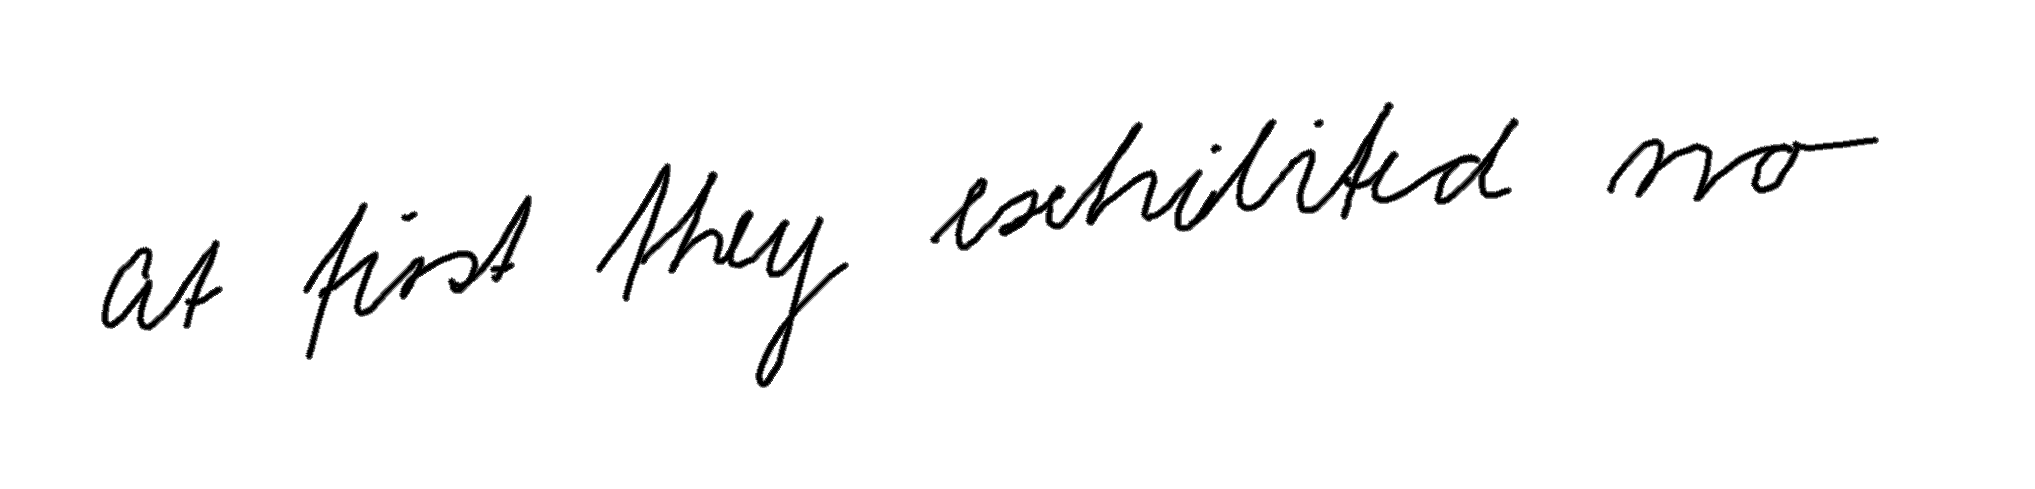 at first they exhibited no